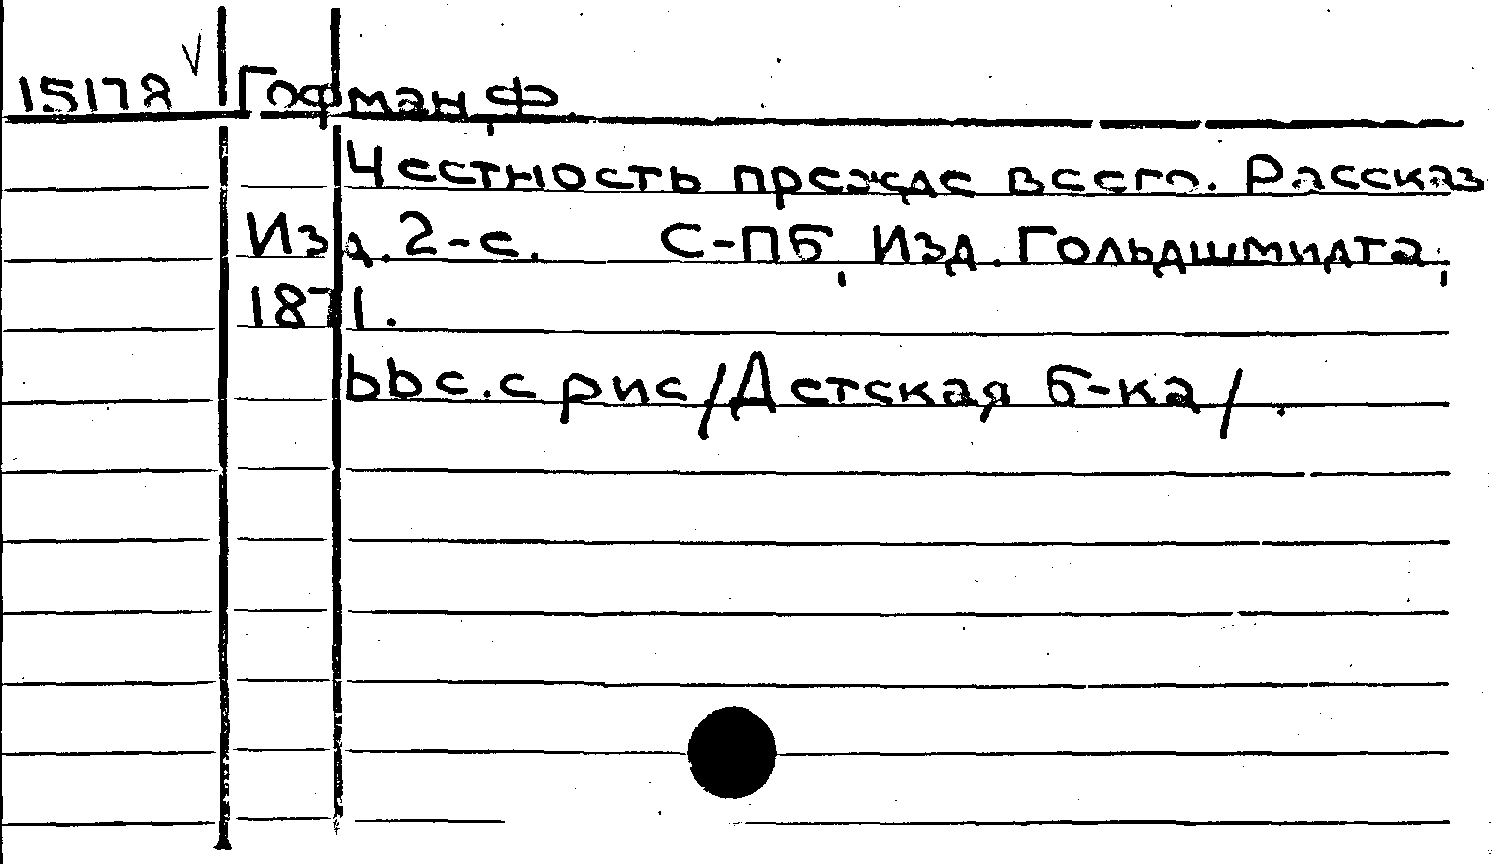 15178 V Гофман, Ф
Честность прежде всего. Рассказ
Изд. 2-е. С-ПБ, Изд. Гольдшмидта,
1871.
ььс. с рис /Детская б-ка/.